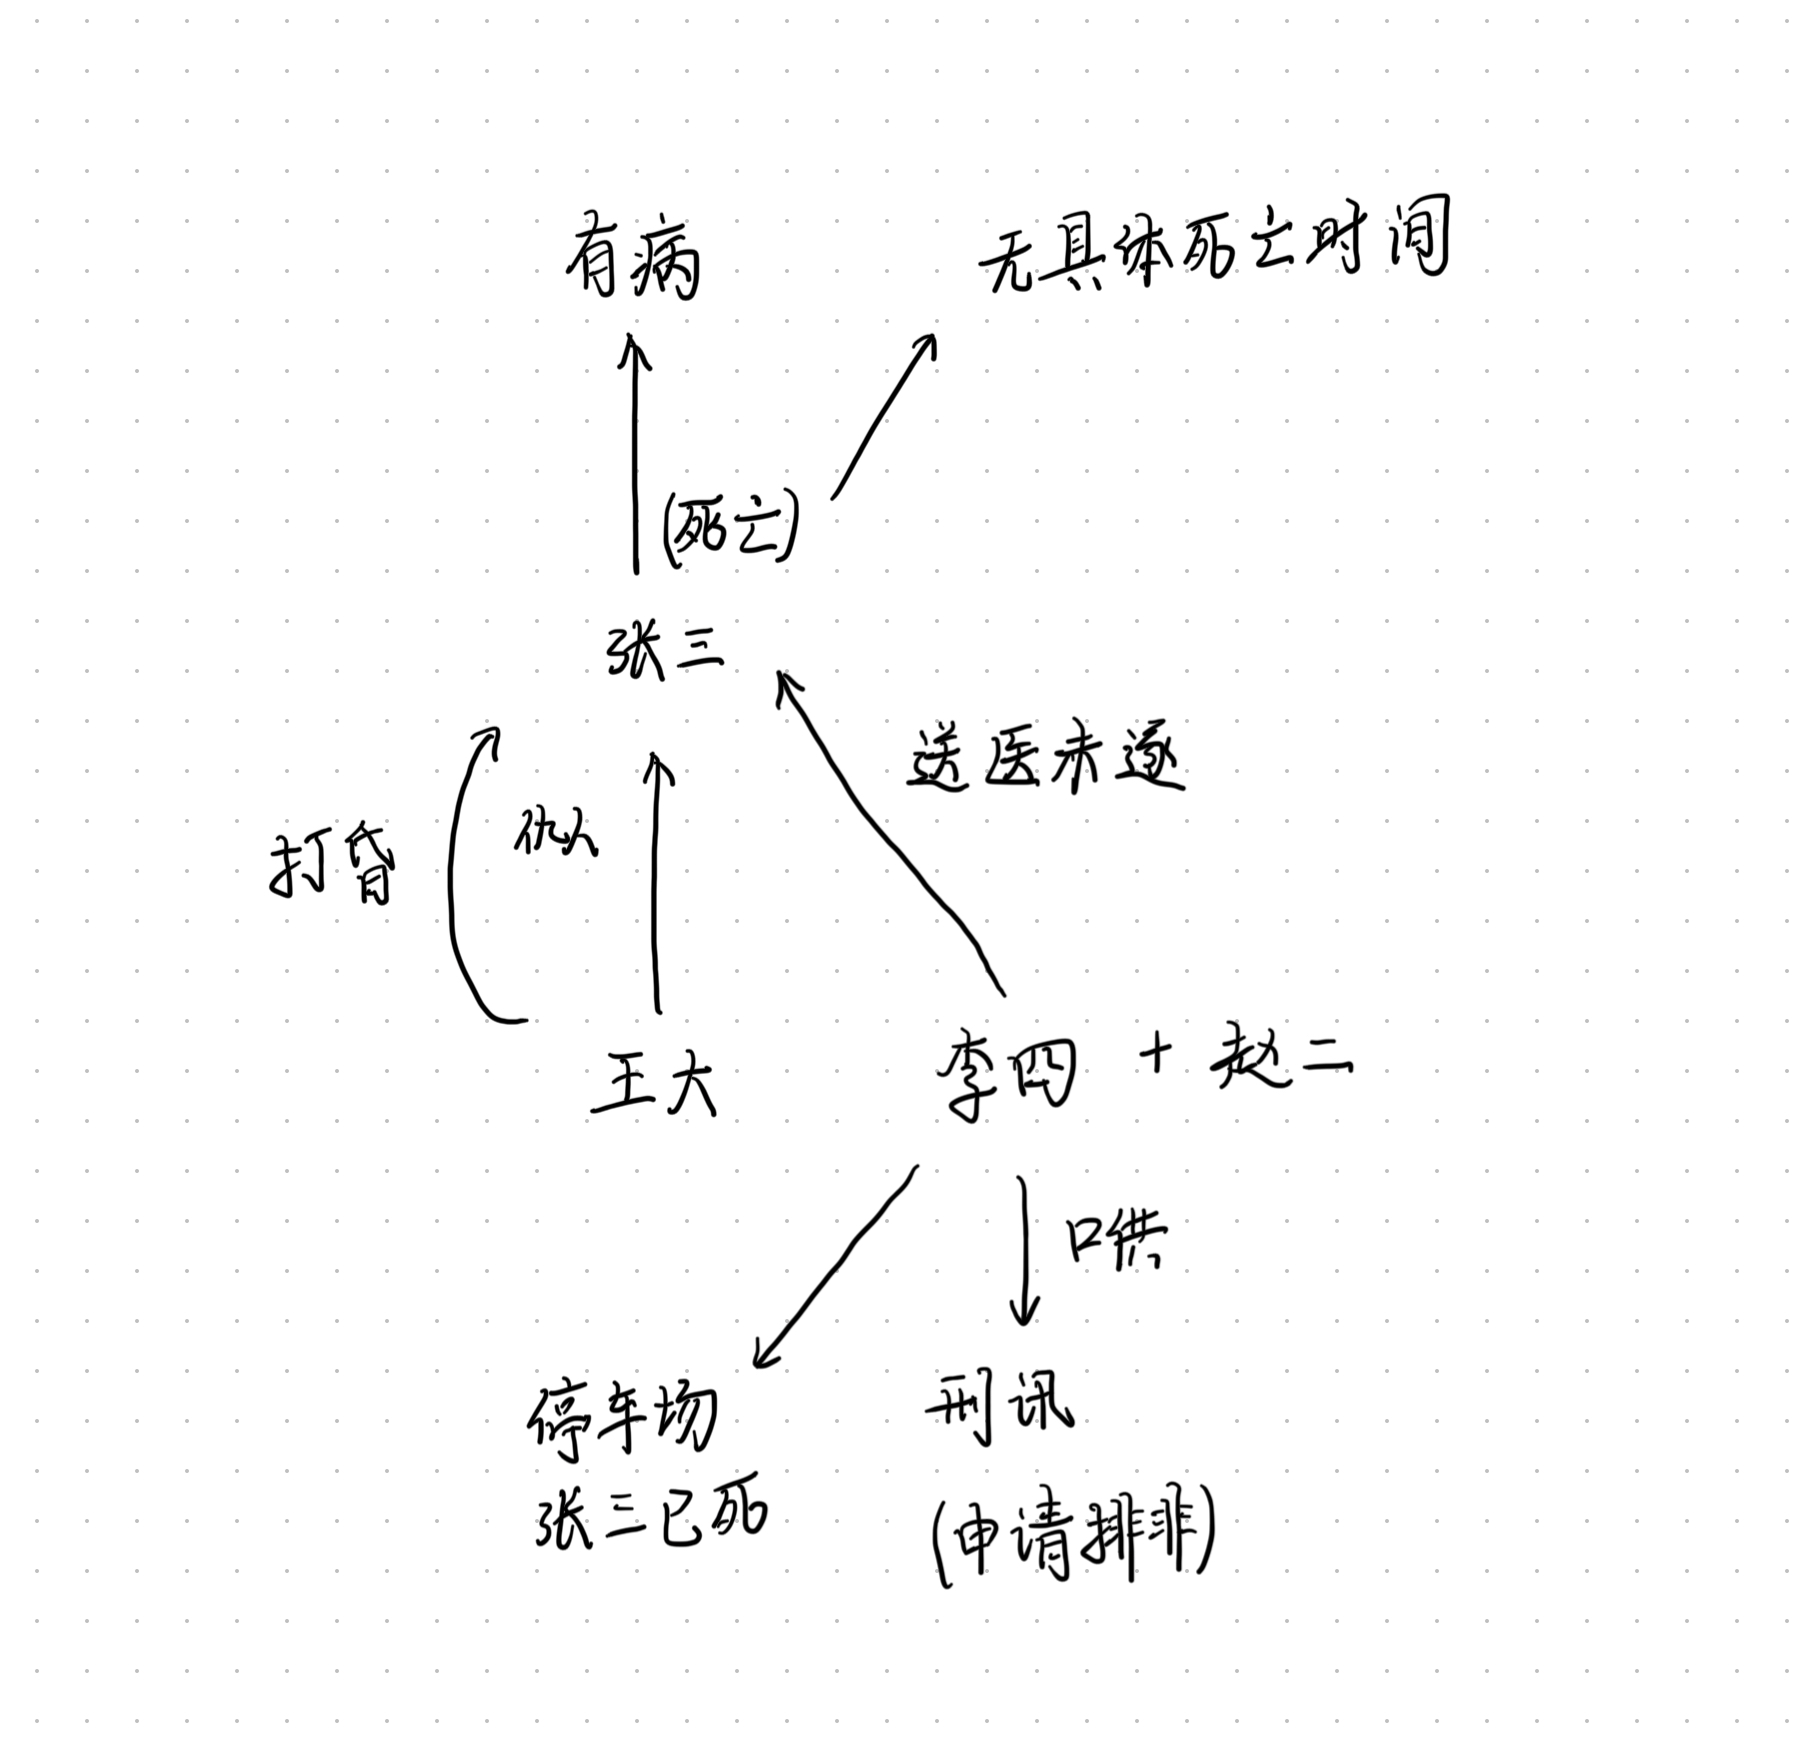 有病
无具体死亡时间
(死亡)
张三
送医未遂
仇人
打昏
王大
李四 + 赵二
口供
停车场
张三已死
刑讯
(申请排非)